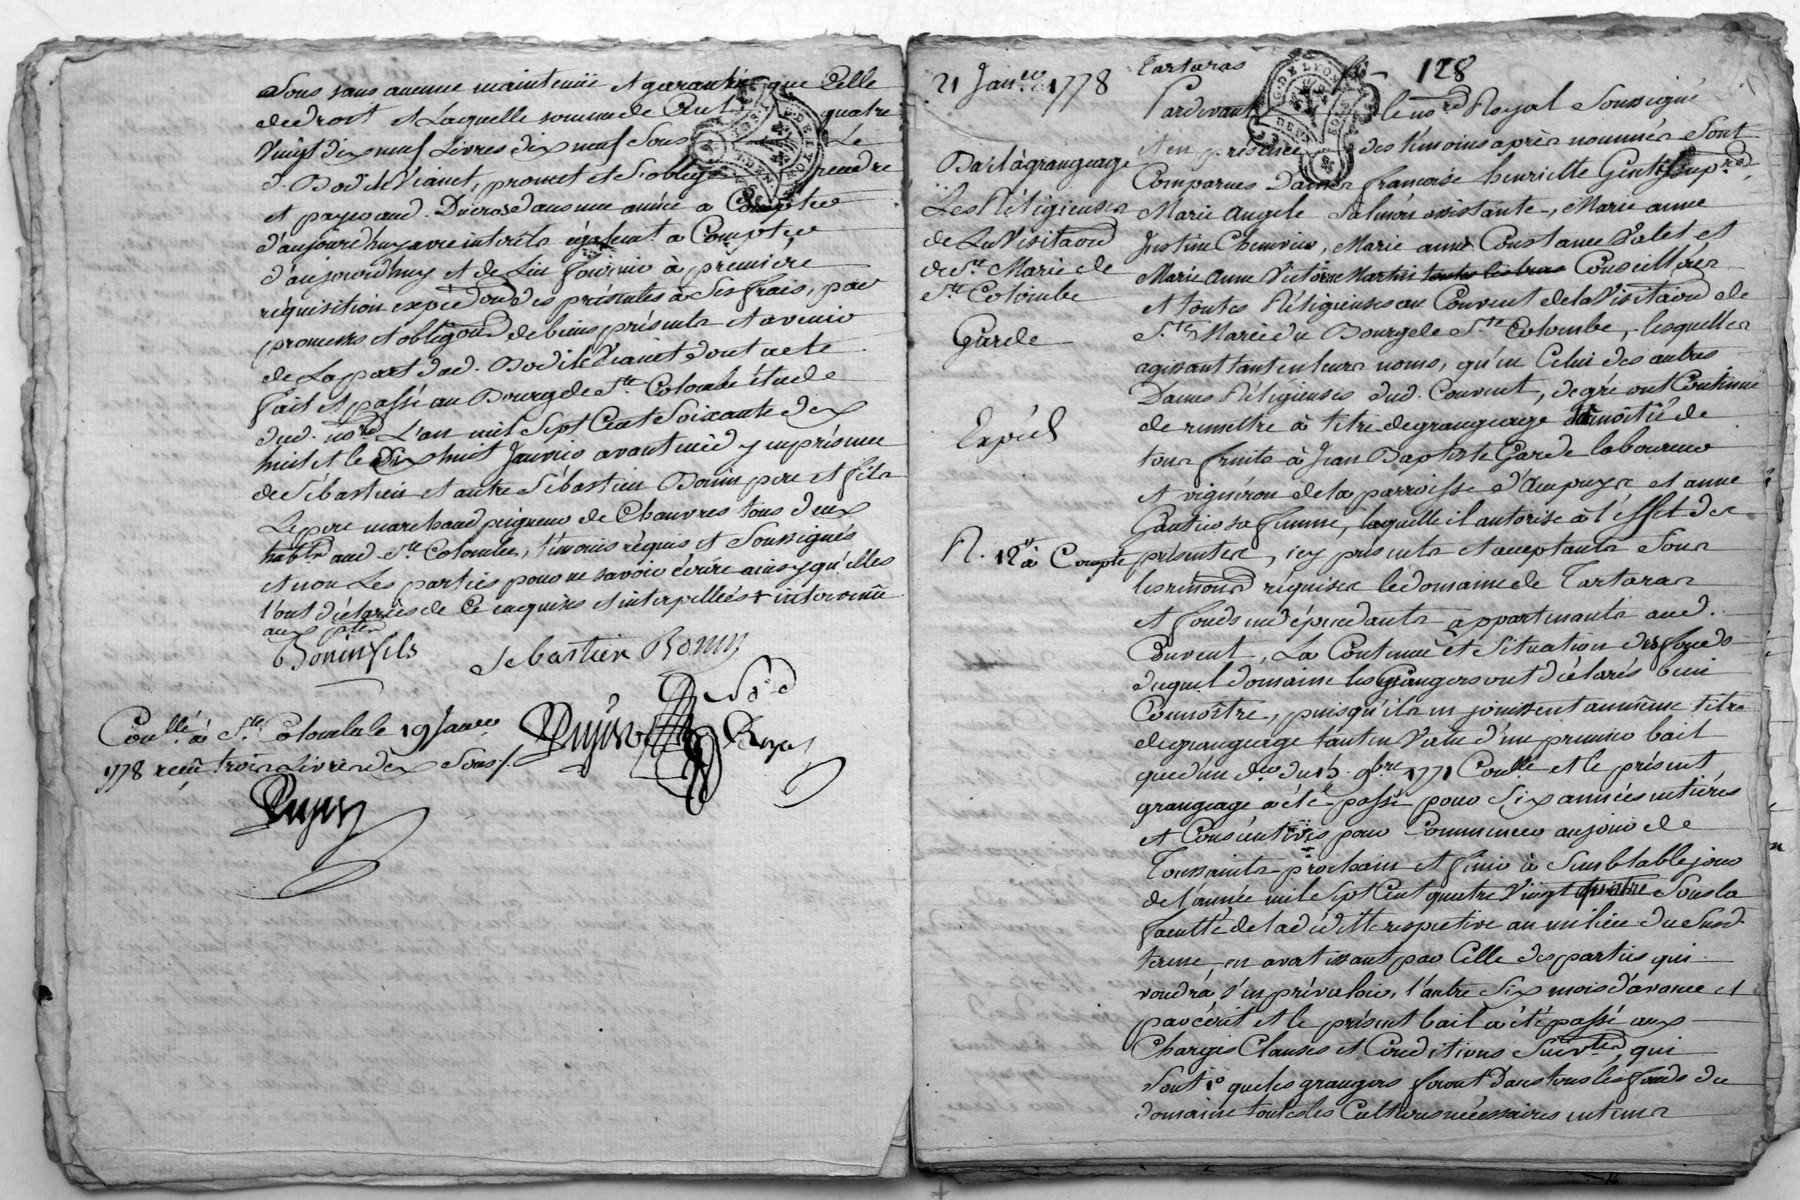 Sous sans aucune maintenüe et garantie que Celle
de droit et Laquelle somme de Cent quatre
Vingt dix neuf Livres dix neuf Sous Le
d. Bod de Vianet, promet et s'oblige rendre
et payer aud. Ducros dans une année a Compter
d'aujourd'huy avec intérêts égalemt. a Compter
d'aujourd'huy et de Lui fournir à première
réquisition expédon des présentes à ses frais, par
promesses et obligaon de biens présents et avenir
de La part dud. Bod de Vianet dont acte
fait et passé au Bourg de Ste. Colombe étude
dud. nore. L'an mil Sept Cent Soixante dix
huit et le Dix huit Janvier avant midy en présence
de Sébastien et autre Sébastien Bonin pere et fils
Le pere marchand peigneur de Chanvres tous deux
habts. aud. Ste. Colombe, témoins requis et Soussignés
et non Les parties pour ne savoir écrire ainsy qu'elles
l'ont déclarées de Ce enquises et interpellées
Bonin fils
Sebastien Bonin
Conllé à Ste. Colombe le 19 Janer.
1778 reçu trois Livres dix Sous
21 Janer. 1778
Tartaras
128
Pardevant le nore. Royal Soussigné
et en présence des témoins après nommés Sont
Bail à grangeage
Comparues Dames françoise henriette Gentil Supre.
Les Réligieuses
Marie Angele Salmon assistante, Marie anne
de La Visitaon
Justine Chenvier, Marie anne Constance Valet et
de Ste Marie de
Marie Anne Victoire Martin Conseilleres
Ste Colombe
et toutes Réligieuses au Couvent de la Visitaon de
Garde
Ste. Marie du Bourg de Ste. Colombe, lesquelles
agissant tant en leurs noms, qu'en Celui des autres
Dames Réligieuses dud. Couvent, de gré ont Continué
Expéd
de remettre à titre de grangeage de
tous fruits à Jean Baptiste Garde laboureur
et vigneron de la parroisse d'Ampuys et anne
Gautier sa femme, laquelle il autorise à l'éffet des
R. 12# à Compte
présentes, icy présents et acceptants Sous
requises le domaine de Tartaras
et fonds en dépendants appartenants aud.
Couvent, La Contenue et Situation des fonds
duquel domaine les grangers ont déclarés bien
Connoître, puisqu'ils en jouissent au même titre
de grangeage tant en Vertu d'un premier bail
que d'un du 15. 9bre 1771 Conllé et le présent
grangeage a été passé pour Six années entières
et Consécutives pour Commencer au jour de
Toussaints prochain et finir à Semblable jour
de l'année mil Sept Cent quatre Vingt quatre Sous la
faculté de la déditte respective au milieu du Susd
terme, en avertissant par Celle des parties qui
voudra s'en prévaloir, l'autre Six mois d'avance et
par écrit et le présent bail a été passé aux
Charges Clauses et Conditions Suivtes. qui
Sont 1o que les grangers feront dans tous les fonds du
domaine toutes les Cultures nécessaires en tems